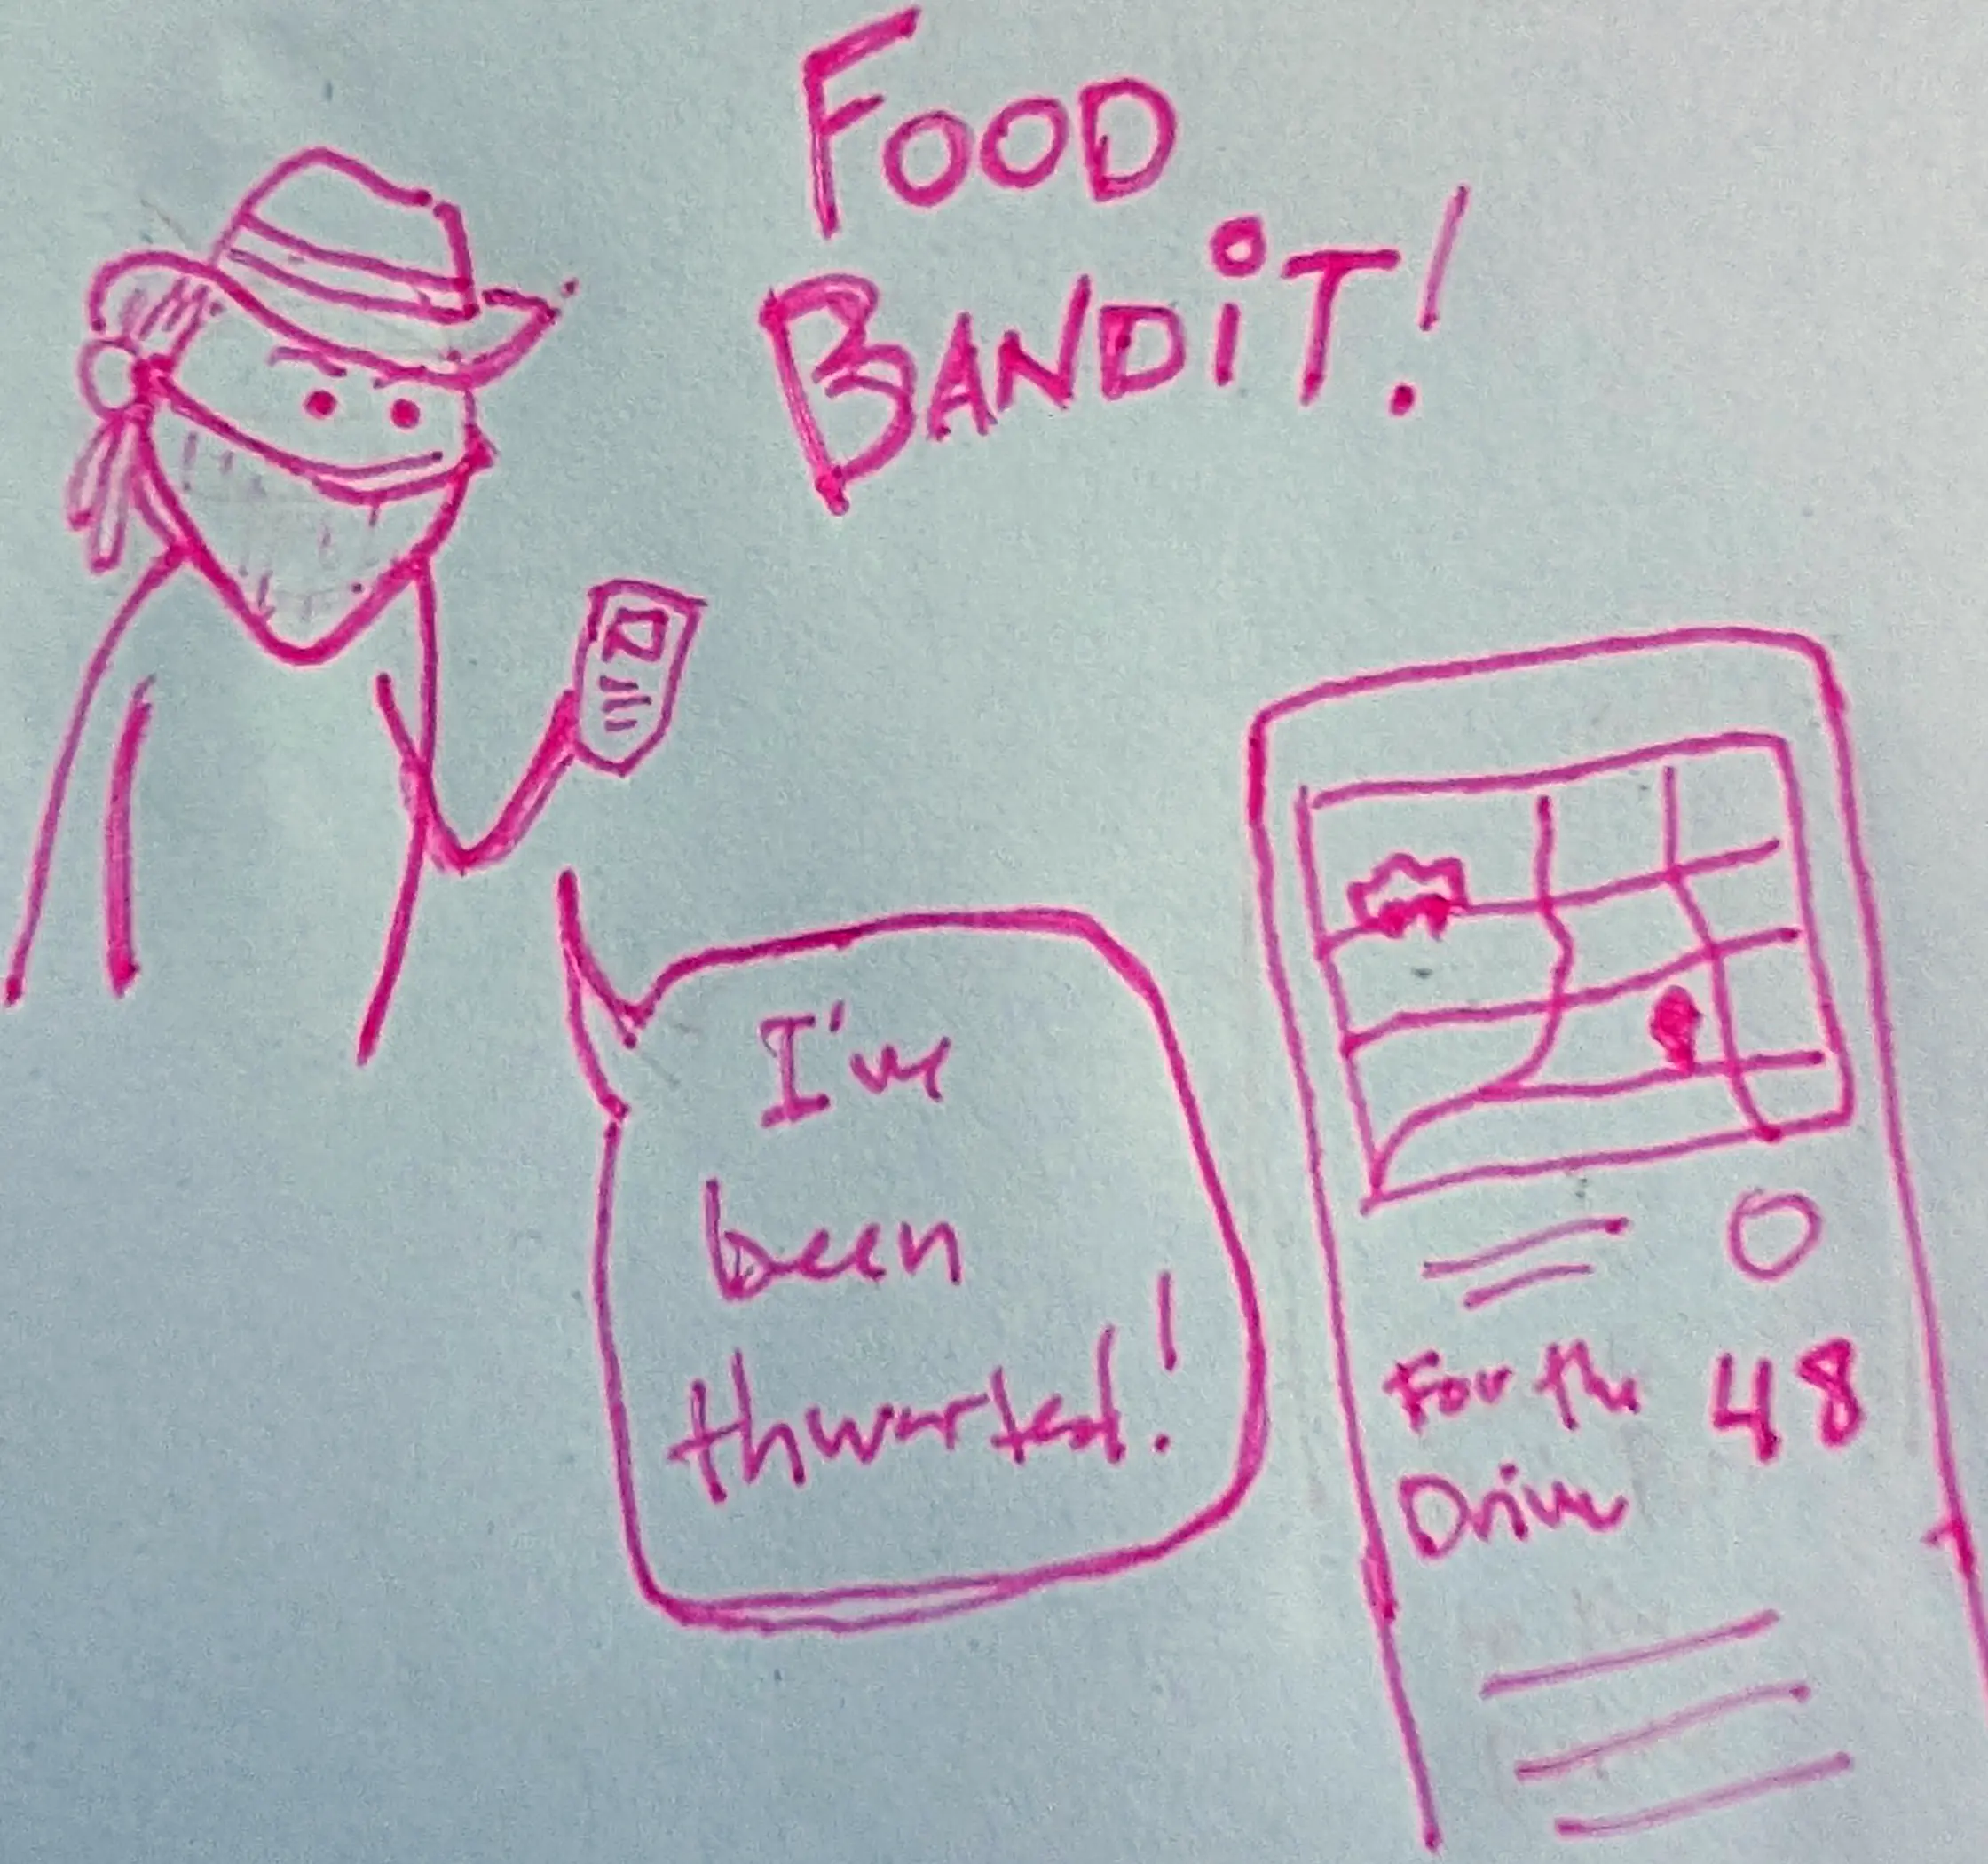 FOOD
BANDiT!
I've
been
thwarted!
For the 48
Driver